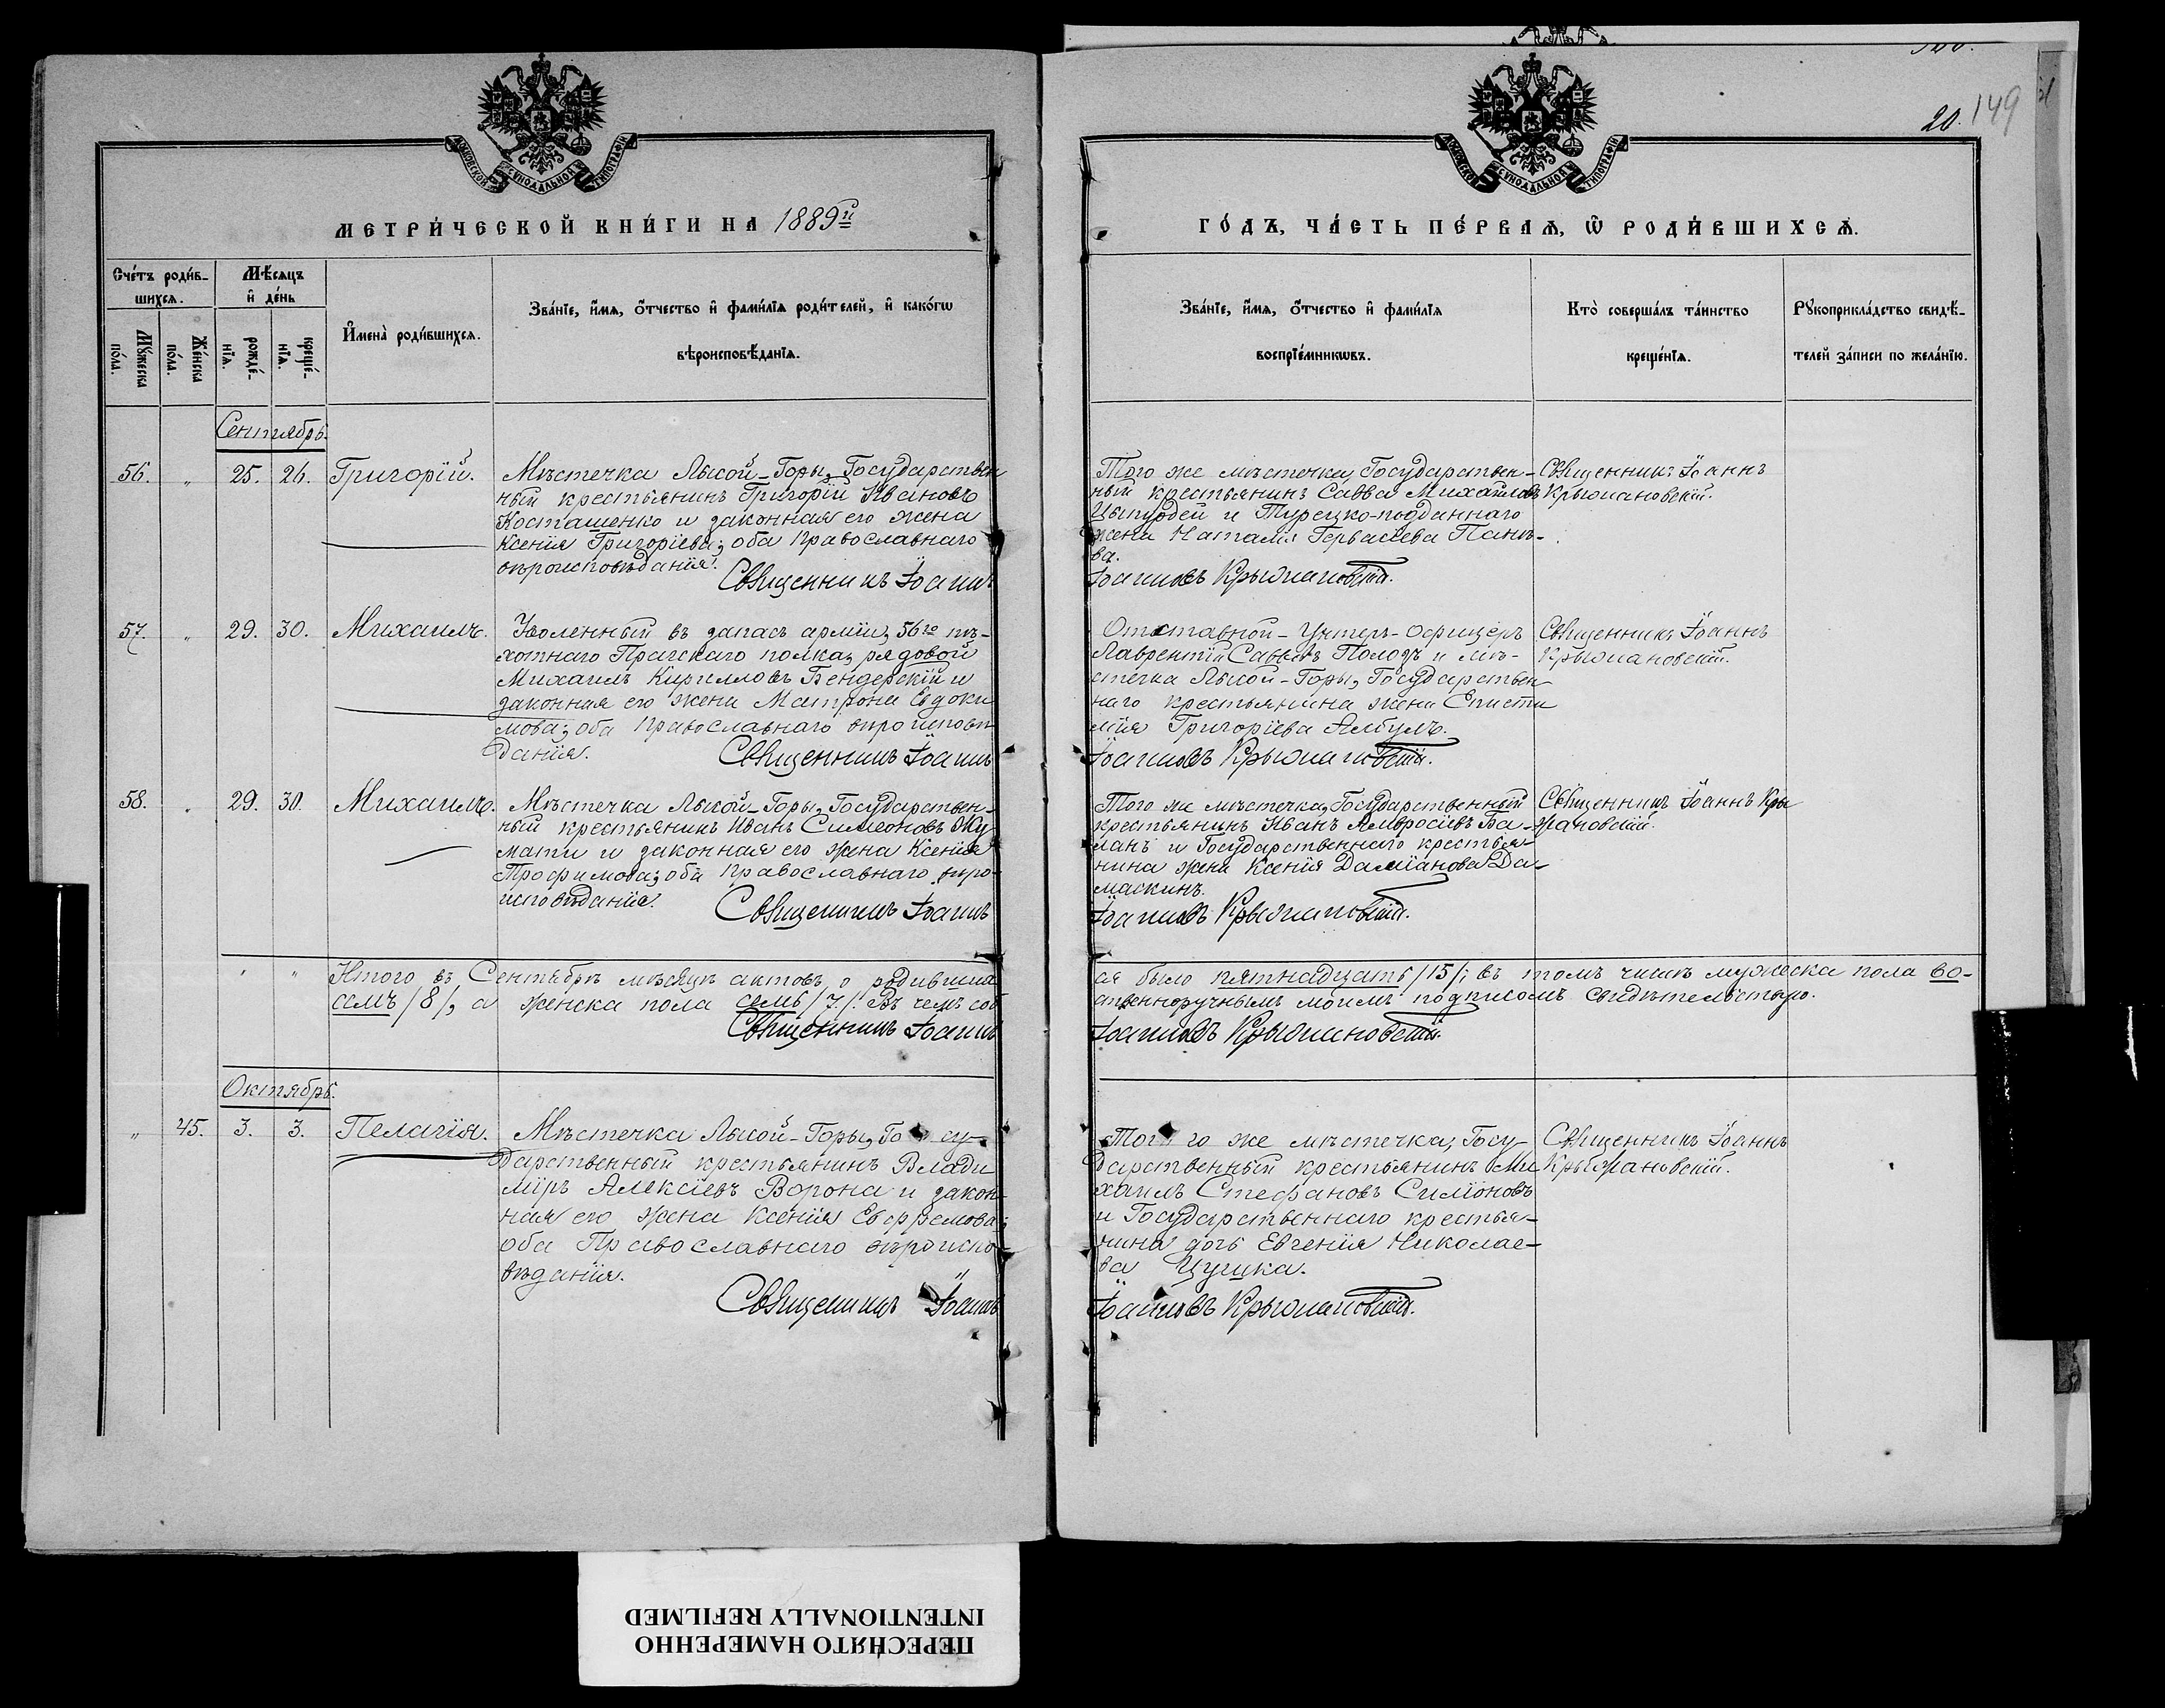 20. 149
МОСКОВСКОЙ СУНОДАЛЬНОЙ ТИПОГРАФІИ
МОСКОВСКОЙ СУНОДАЛЬНОЙ ТИПОГРАФІИ
МЕТРИ́ЧЕСКОЙ КНИ́ГИ НА 1889й
ГО́ДЪ, ЧА́СТЬ ПЕ́РВАѦ, Ѡ҃ РОДИ́ВШИХСѦ.
Сче́тъ роди́в-
шихсѧ.
Мꙋ́жеска по́ла.
Же́нска по́ла.
Мѣ́сѧцъ
и҆ де́нь
рожде́-
нїѧ.
креще́-
нїѧ.
И҆мена̀ роди́вшихсѧ.
Зва́нїе, и҆́мѧ, ѻ҆́тчество и҆ фами́лїѧ роди́телей, и҆ како́гѡ
вѣроисповѣ́данїѧ.
Зва́нїе, и҆́мѧ, ѻ҆́тчество и҆ фами́лїѧ
воспрїе́мникѡвъ.
Кто̀ соверша́лъ та́инство
креще́нїѧ.
Рꙋкоприкла́дство свидѣ́-
телей за́писи по жела́нїю.
Сентябрь.
56. „ 25. 26. Григорій.
Мѣстечка Лысой-Горы, Государствен
ный крестьянинъ Григорій Ивановъ
Косташенко и законная его жена
Ксенія Григоріева; оба Православнаго
вѣроисповѣданія.
Священникъ Іоаннъ
Того же мѣстечка, Государствен-
ный крестьянинъ Савва Михайловъ
Цыгурдей и Турецко-подданнаго
жена Наталія Гервасіева Панъ-
ва.
Іоанновъ Крыжановскій.
Священникъ Іоаннъ
Крыжановскій.
57. „ 29. 30. Михаилъ.
Уволенный въ запасъ арміи, 56го пѣ-
хотнаго Пражскаго полка, рядовой
Михаилъ Кирилловъ Бендерскій и
законная его жена Матрона Евдоки
мова; оба Православнаго вѣроисповѣ-
данія.
Священникъ Іоаннъ
Отставной-Унтеръ-Офицеръ
Лаврентій Саввовъ Полодъ и мѣ-
стечка Лысой-Горы, Государствен
наго крестьянина жена Еписти
мія Григоріева Албулъ.
Іоанновъ Крыжановскій.
Священникъ Іоаннъ
Крыжановскій.
58. „ 29. 30. Михаилъ.
Мѣстечка Лысой-Горы, Государствен-
ный крестьянинъ Иванъ Симеоновъ Жу
мати и законная его жена Ксенія
Трофимова; оба Православнаго вѣро-
исповѣданія.
Священникъ Іоаннъ
Того же мѣстечка, Государственный
крестьянинъ Иванъ Амвросіевъ Ба-
ланъ и Государственнаго крестья-
нина жена Ксенія Даміанова Да-
маскинъ.
Іоанновъ Крыжановскій.
Священникъ Іоаннъ Кры
жановскій.
Итого въ Сентябрѣ мѣсяцѣ актовъ о родивших
ся было пятнадцать /15/; въ томъ числѣ мужеска пола во-
семъ /8/, а женска пола семь /7/. Въ чемъ соб
ственноручнымъ моимъ подписомъ свидѣтельствую.
Священникъ Іоаннъ
Іоанновъ Крыжановскій.
Октябрь.
„ 45. 3. 3. Пелагія.
Мѣстечка Лысой-Горы, Госу-
дарственный крестьянинъ Влади
міръ Алексіевъ Ворона и закон-
ная его жена Ксенія Евфремова;
оба Православнаго вѣроиспо-
вѣданія.
Священникъ Іоаннъ
Того же мѣстечка, Госу-
дарственный крестьянинъ Ми
хаилъ Стефановъ Симіоновъ
и Государственнаго крестья-
нина дочь Евгенія Николае-
ва Цуцка.
Іоанновъ Крыжановскій.
Священникъ Іоаннъ
Крыжановскій.
ПЕРЕСНЯТО НАМЕРЕННО
INTENTIONALLY REFILMED